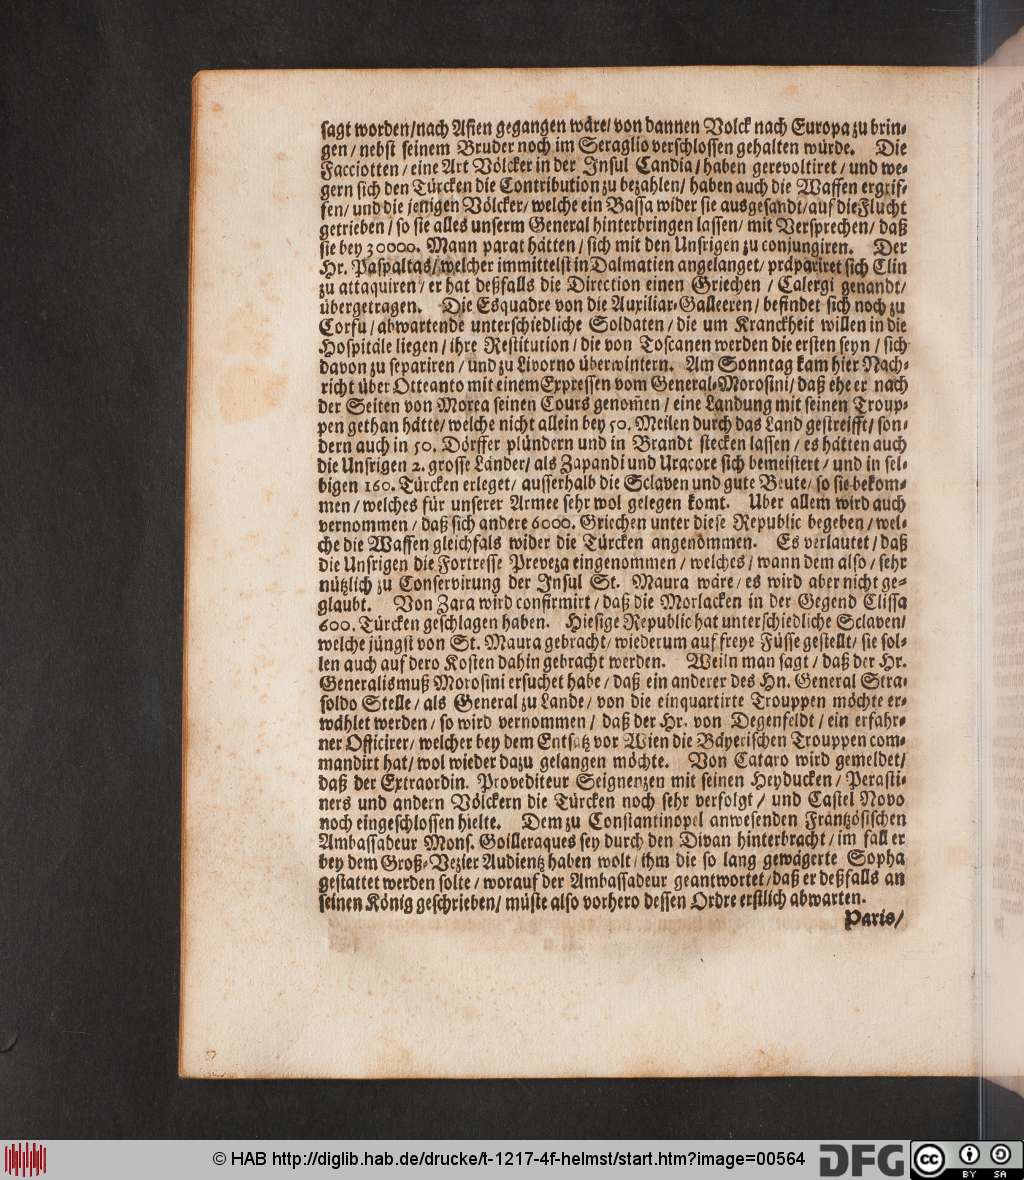 sagt worden/nach Asien gegangen wäre/ von dannen Volck nach Europa zu brin-
gen / nebst seinem Bruder noch im Seraglio verschlossen gehalten würde. Die
Facciotten / eine Art Völcker in der Insul Candia / haben gerevoltiret / und we-
gern sich den Türcken die Contribution zu bezahlen/ haben auch die Waffen ergrif-
fen/ und die jenigen Völcker/ welche ein Bassa wider sie ausgesandt/auf dieFlucht
getrieben / so sie alles unserm General hinterbringen lassen/ mit Versprechen/ daß
sie bey 30000. Mann parat hätten / sich mit den Unsrigen zu conjungiren. Der
Hr. Paspaltas/welcher immittelst in Dalmatien angelanget/ präpariret sich Clin
zu attaquiren / er hat deßfalls die Direction einen Griechen / Calergi genandt/
übergetragen. Die Esquadre von die Auxiliar-Galleeren / befindet sich noch zu
Corfu / abwartende unterschiedliche Soldaten / die um Kranckheit willen in die
Hospitäle liegen / ihre Restitution / die von Toscanen werden die ersten seyn / sich
davon zu separiren / und zu Livorno überwintern. Am Sonntag kam hier Nach-
richt über Otteanto mit einemExpressen vom General-Morosini/ daß ehe er nach
der Seiten von Morea seinen Cours genom̃en / eine Landung mit seinen Troup-
pen gethan hätte/ welche nicht allein bey 50. Meilen durch das Land gestreifft/ son-
dern auch in 50. Dörffer plündern und in Brandt stecken lassen / es hätten auch
die Unsrigen 2. grosse Länder/ als Zapandi und Uracore sich bemeistert / und in sel-
bigen 160. Türcken erleget/ ausserhalb die Sclaven und gute Beute/ so sie bekom-
men / welches für unserer Armee sehr wol gelegen komt. Uber allem wird auch
vernommen / daß sich andere 6000. Griechen unter diese Republic begeben / wel-
che die Waffen gleichfals wider die Türcken angenommen. Es verlautet / daß
die Unsrigen die Fortresse Preveza eingenommen / welches / wann dem also / sehr
nützlich zu Conservirung der Insul St. Maura wäre / es wird aber nicht ge-
glaubt. Von Zara wird confirmirt / daß die Morlacken in der Gegend Clissa
600. Türcken geschlagen haben. Hiesige Republic hat unterschiedliche Sclaven/
welche jüngst von St. Maura gebracht/ wiederum auf freye Füsse gestellt/ sie sol-
len auch auf dero Kosten dahin gebracht werden. Weiln man sagt / daß der Hr.
Generalismuß Morosini ersuchet habe / daß ein anderer des Hn. General Stra-
soldo Stelle / als General zu Lande / von die einquartirte Trouppen möchte er-
wählet werden / so wird vernommen / daß der Hr. von Degenfeldt / ein erfahr-
ner Officirer/ welcher bey dem Entsatz vor Wien die Bäyerischen Trouppen com-
mandirt hat/ wol wieder dazu gelangen möchte. Von Cataro wird gemeldet/
daß der Extraordin. Provediteur Seignenzen mit seinen Heyducken / Perasti-
ners und andern Völckern die Türcken noch sehr verfolgt / und Castel Novo
noch eingeschlossen hielte. Dem zu Constantinopel anwesenden Frantzösischen
Ambassadeur Mons. Goilleraques sey durch den Divan hinterbracht / im fall er
bey dem Groß-Vezier Audientz haben wolt / ihm die so lang gewägerte Sopha
gestattet werden solte / worauf der Ambassadeur geantwortet/daß er deßfalls an
seinen König geschrieben/ müste also vorhero dessen Ordre erstlich abwarten.
Paris/
© HAB http://diglib.hab.de/drucke/t-1217-4f-helmst/start.htm?image=00564
DFG
cc BY SA